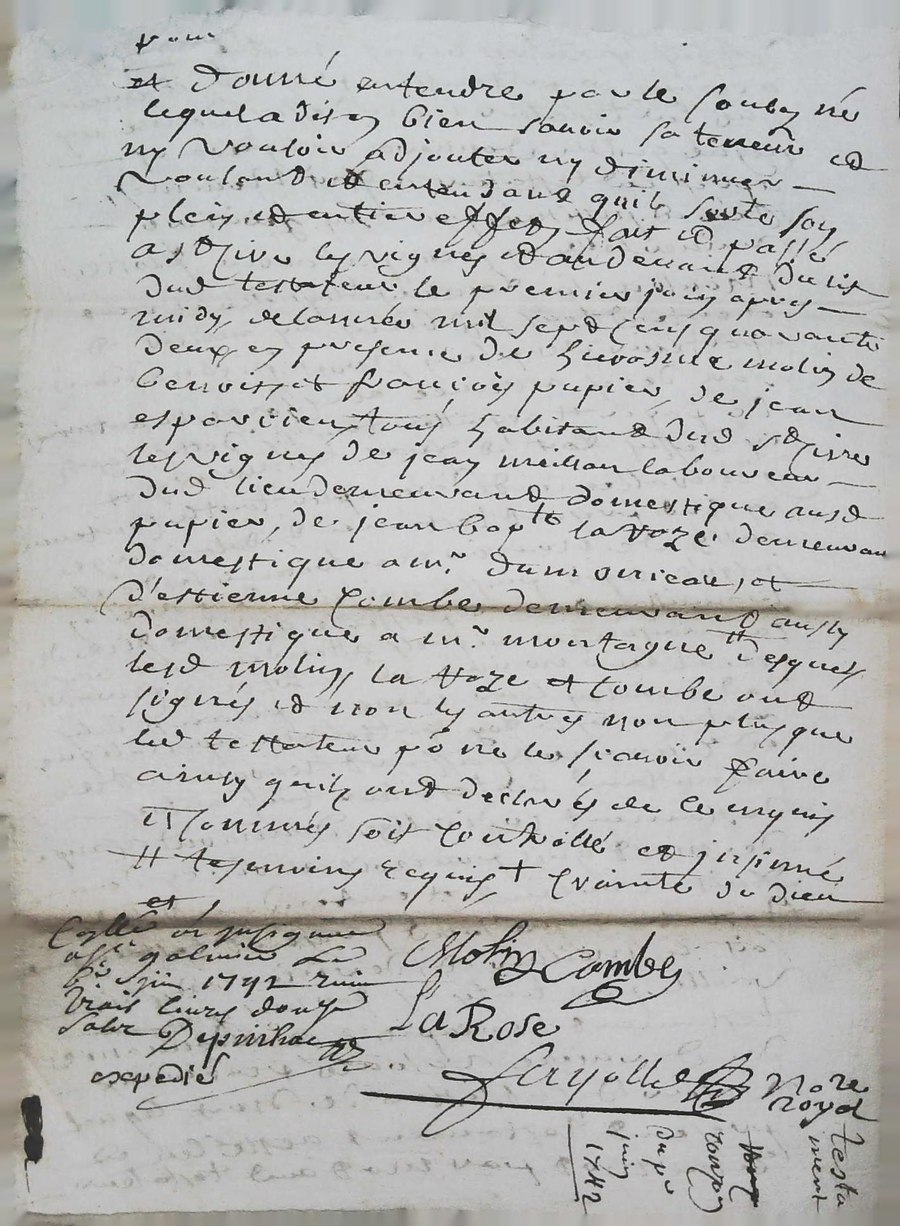 et donné entendre par le soubz né
lequel a dit en bien savoir sa teneur et
ny vouloir adjouter ny diminuer
voulant et entendant quil sorte son
plein et entier effet, fait et passé
a st Cire les vignes et au devant du
dud testateur le premier juin apres
midy de lannée mil sept cens quarante
deux en presence de hierosme molin de
benoist et françois pupier, de jean
esparvier tous habitans dud st Cire
les vignes de jean meillan laboureur
dud lieu demeurant domestique aud
pupier, de jean bapte la Roze demeurant
domestique a mr. et
d'estienne Combe demeurant aussy
domestique a mr. montagne # desquels
lesd molin, la Roze et Combe ont
signés et non les autres non plus que
led testateur po ne le scavoir faire
ainsy quils ont declarés de ce enquis
soit controllé et insinué
# tesmoins requis + crainte de dieu
et
Contllé et insinué
a galmier le
juin 1742
trois livres douze
sols
expedié
Molin Combe
La Rose
Nore
royal
testa
ment
du pr
juin
1742